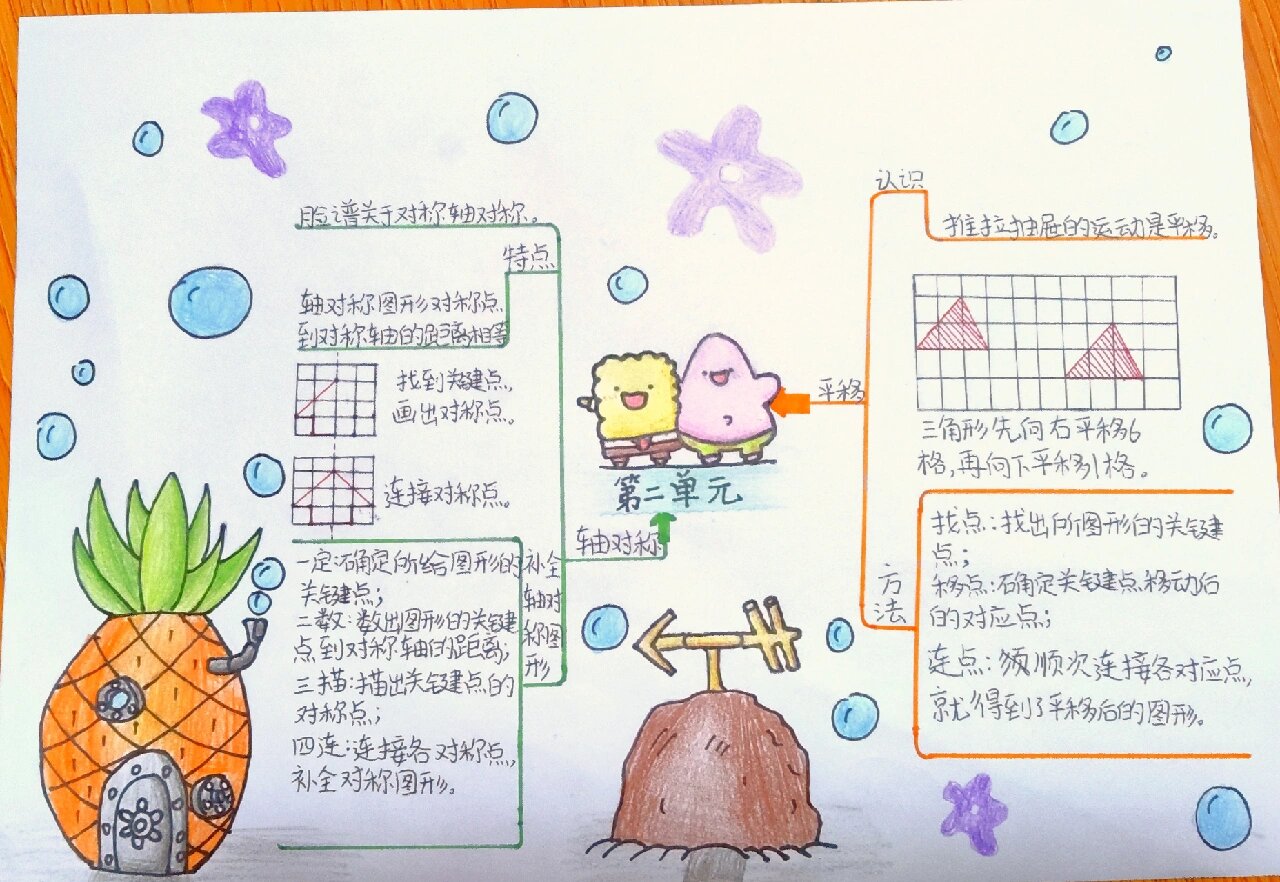 脸谱关于对称轴对称。
特点
轴对称图形对称点
到对称轴的距离相等
找到关键点,
画出对称点。
连接对称点。
一定:确定所给图形的
关键点;
二数:数出图形的关键
点到对称轴的距离;
三描:描出关键点的
对称点;
四连:连接各对称点,
补全对称图形。
补全
轴对
称图
形
轴对称
第二单元
平移
认识
推拉抽屉的运动是平移。
三角形先向右平移6
格,再向下平移1格。
方
法
找点:找出所图形的关键
点;
移点:确定关键点移动后
的对应点;
连点:须顺次连接各对应点,
就得到了平移后的图形。